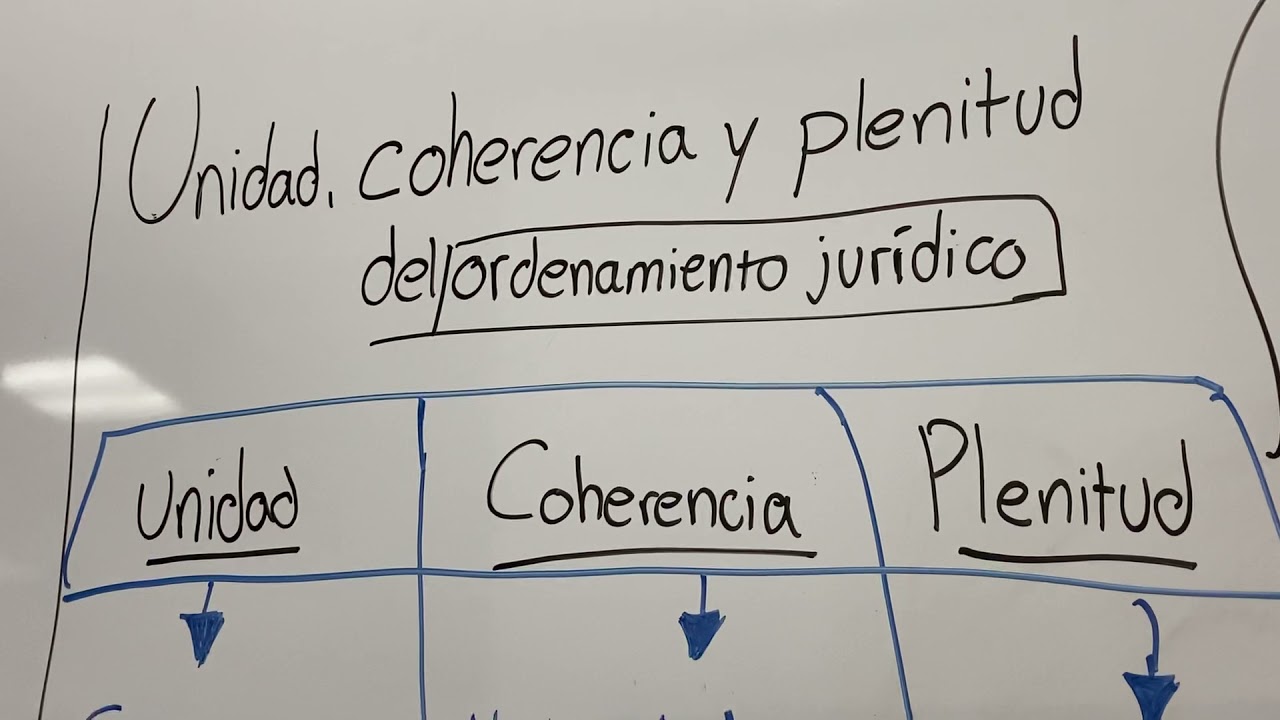 Unidad, coherencia y plenitud
del ordenamiento jurídico
Unidad Coherencia Plenitud